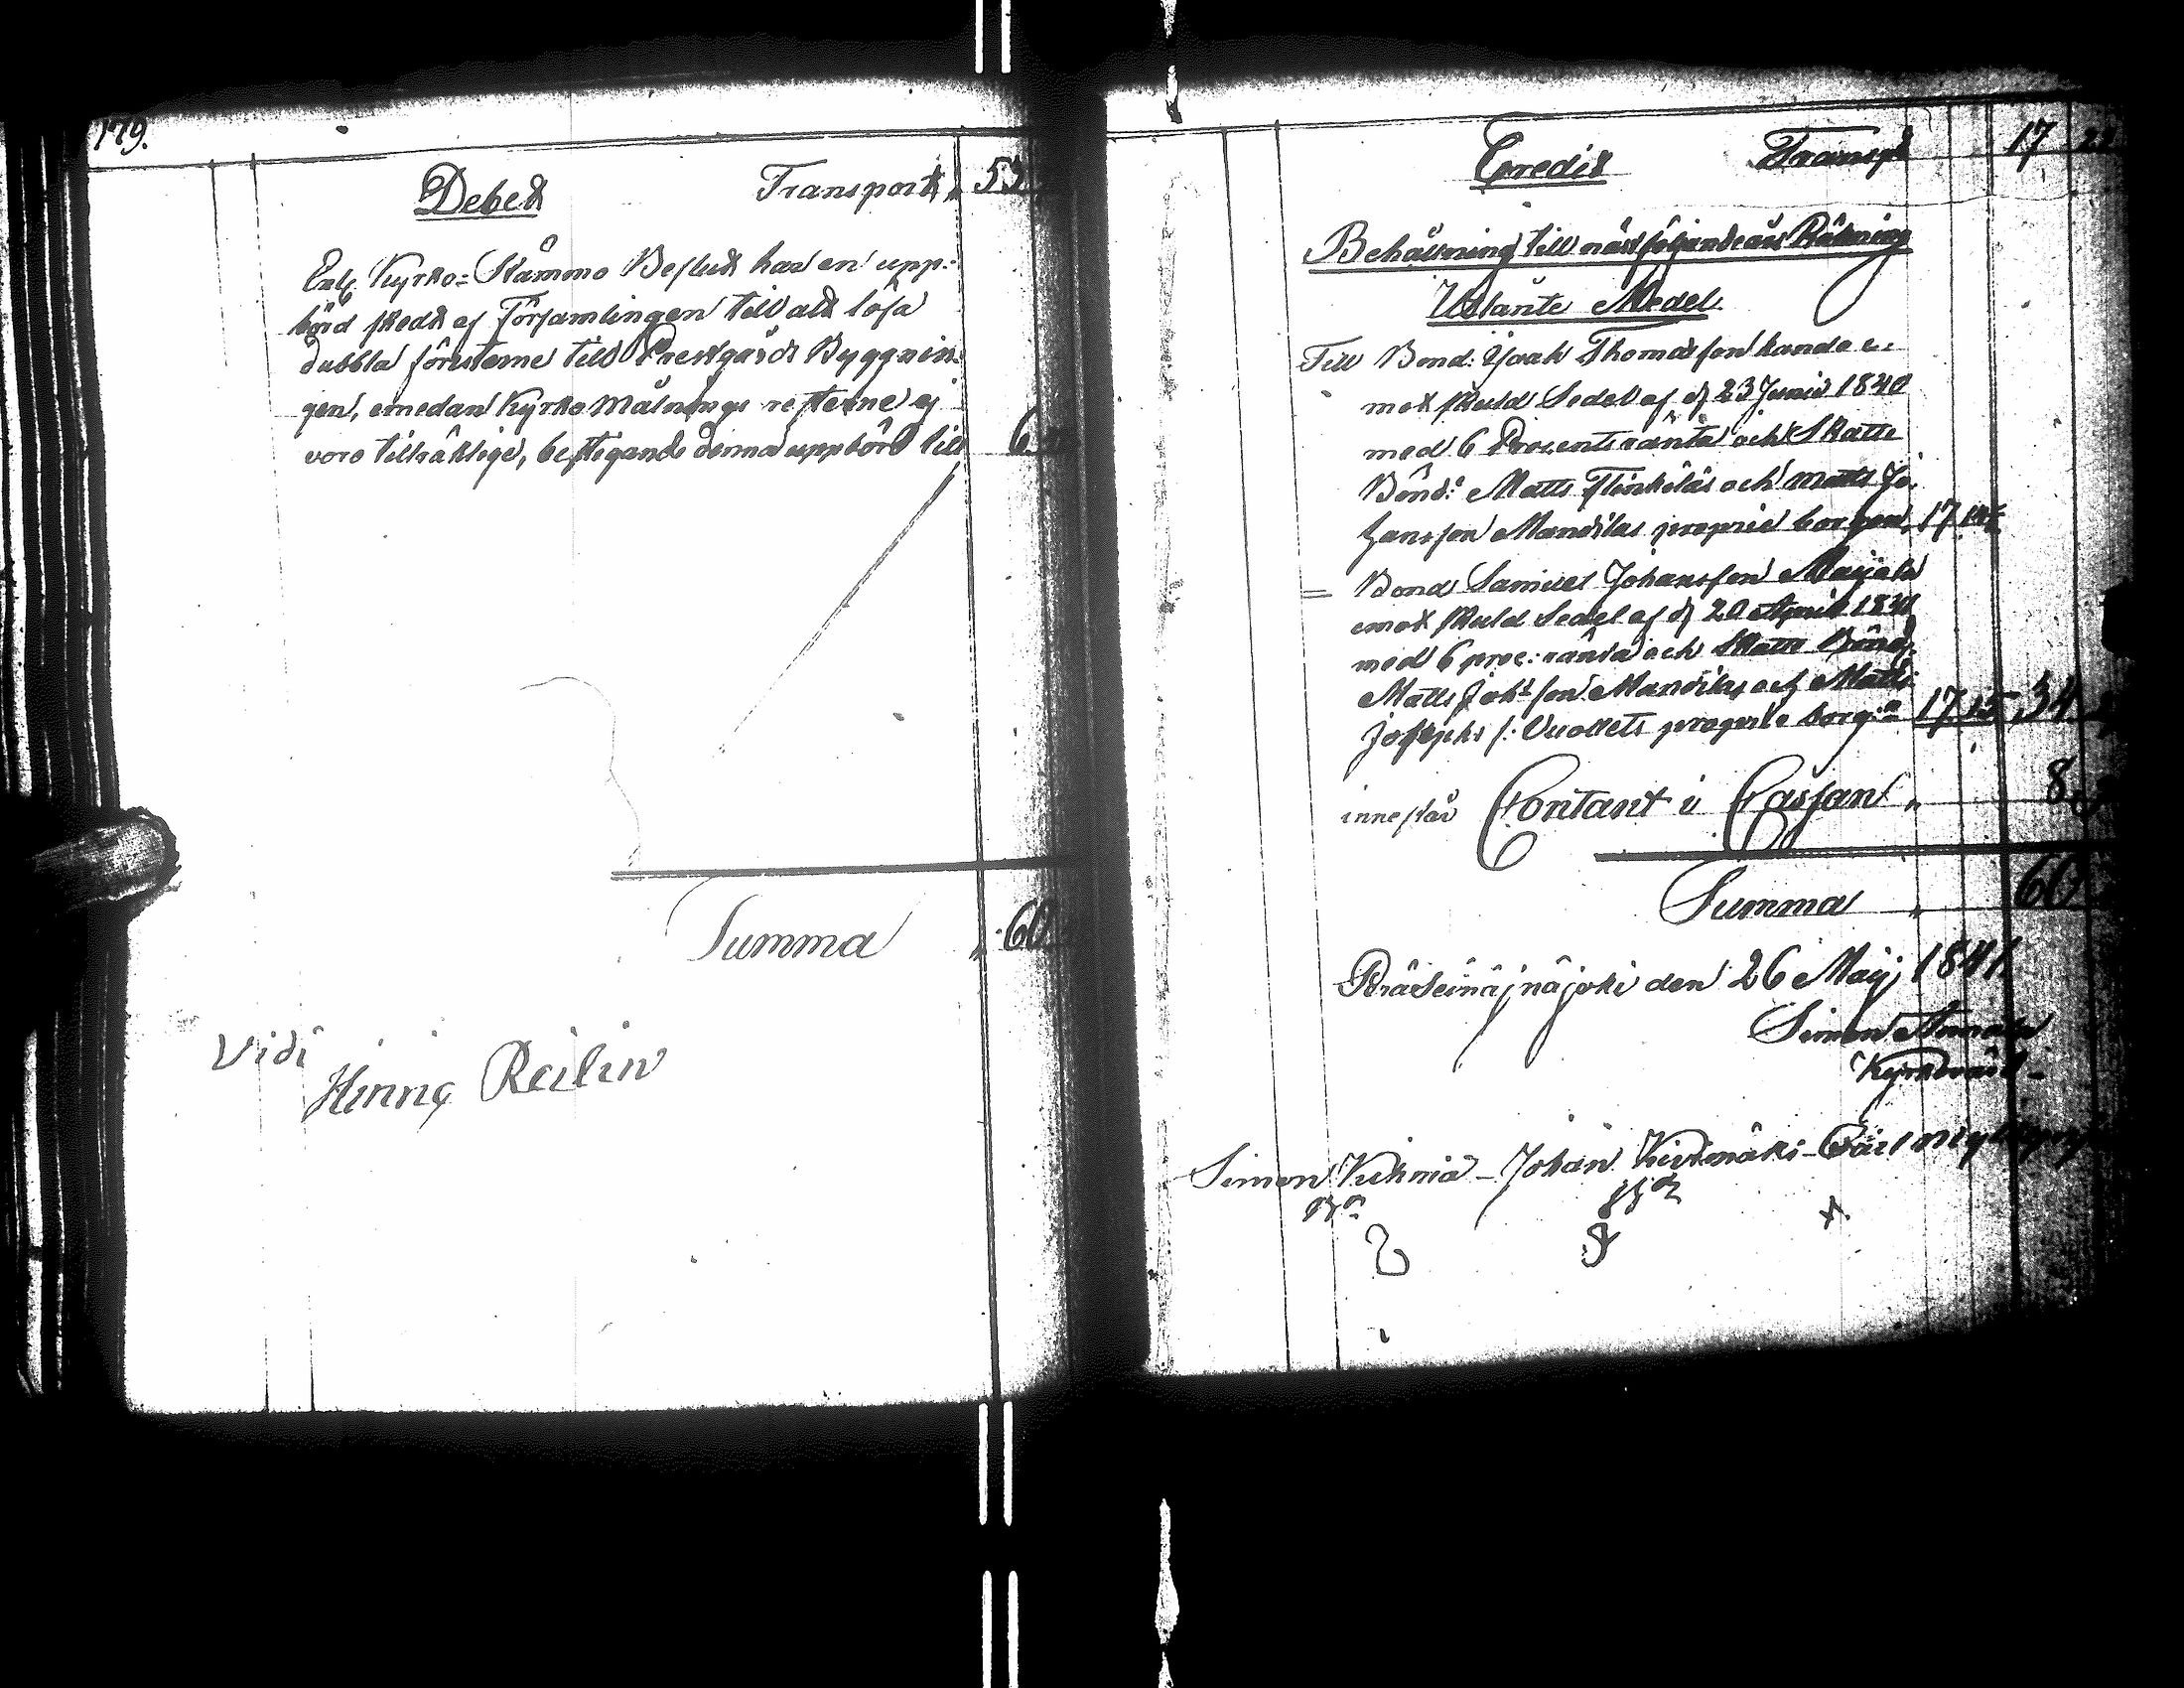 179.
Debet Transport 53
Enl. Kyrko-Stämmo Beslut har en upp-
börd skedt af Församlingen till att lösa
dubbla fönsterne till Prestgårds Byggnin-
gen, emedan Kyrko Målnings resterne ej
voro tillräklige, bestigande denna uppbörd till 6
Summa 60
Vidi
Reilin
Credit Transpt 17 22
Behållning till nästföljande års Räkning
Utlånte Medel
Till Bond: Isaak Thomasson e-
mot skuld Sedel af d 23 Junii 1840
med 6 Procents ränta och Skatte
Bönd: Matts och Matts Jo-
hansson Mandilas proprie borgen, 17
= Bond Samuel Johansson Maijala
emot skuld Sedel af d 20 April 1840
med 6 proc: ränta och Skatte Bönd:
Matts Joh: son Mandilas och Matts
Josephs s: Vuollets proprie borg:n 17 15 34
innestår Contant i Cassan 8
Summa 60
Peräseinäjoki den 26 Maij 1841
Simon
Kyrkovärd
Simon Kuhna - Johan Kivimäki - Carl